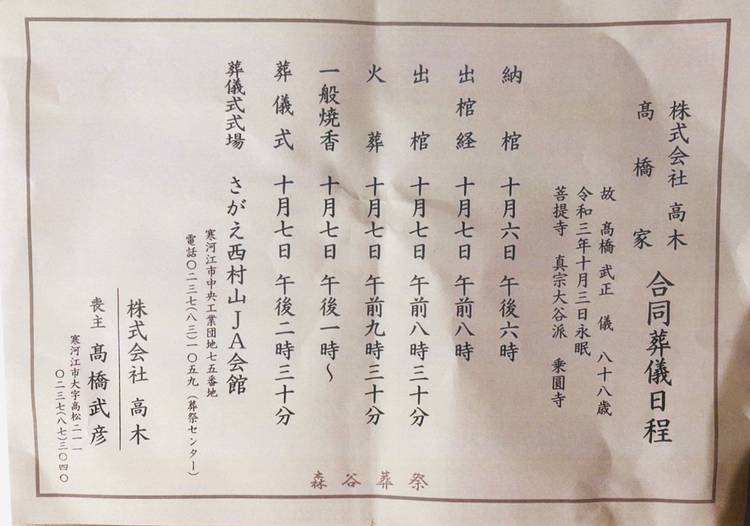 株式会社 高木
髙橋家
合同葬儀日程
故 髙橋 武正 儀 八十八歳
令和三年十月三日永眠
菩提寺 真宗大谷派 乗圓寺
納棺 十月六日 午後六時
出棺経 十月七日 午前八時
出棺 十月七日 午前八時三十分
火葬 十月七日 午前九時三十分
一般焼香 十月七日 午後一時〜
葬儀式 十月七日 午後二時三十分
葬儀式式場 さがえ西村山JA会館
寒河江市中央工業団地七五番地
電話〇二三七(八三)一〇五九(葬祭センター)
株式会社 高木
喪主 髙橋武彦
寒河江市大字高松二一一
〇二三七(八七)三〇四〇
森谷葬祭